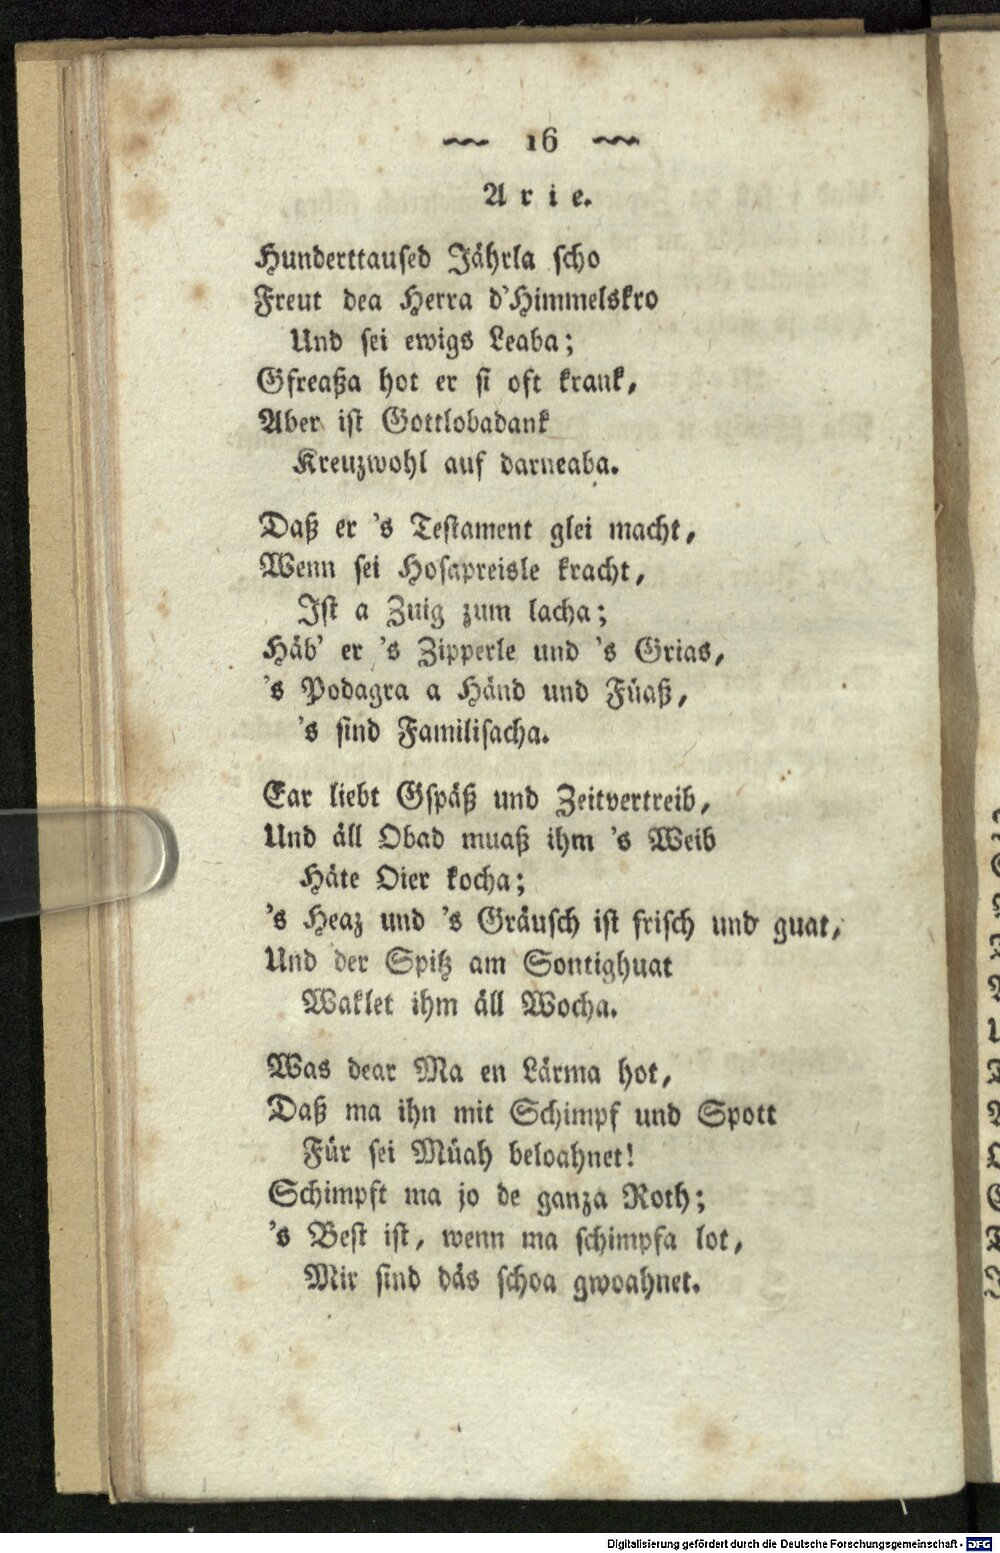 16
Arie.
Hunderttaused Jährla scho
Freut dea Herra d'Himmelskro
Und sei ewigs Leaba;
Gfreaßa hot er si oft krank,
Aber ist Gottlobadank
Kreuzwohl auf darneaba.
Daß er 's Testament glei macht,
Wenn sei Hosapreisle kracht,
Ist a Zuig zum lacha;
Häb' er 's Zipperle und 's Grias,
's Podagra a Händ und Füaß,
's sind Familisacha.
Ear liebt Gspäß und Zeitvertreib,
Und äll Obad muaß ihm 's Weib
Häte Oier kocha;
's Heaz und 's Gräusch ist frisch und guat,
Und der Spitz am Sontighuat
Waklet ihm äll Wocha.
Was dear Ma en Lärma hot,
Daß ma ihn mit Schimpf und Spott
Für sei Müah beloahnet!
Schimpft ma jo de ganza Roth;
's Best ist, wenn ma schimpfa lot,
Mir sind däs schoa gwoahnet.
Digitalisierung gefördert durch die Deutsche Forschungsgemeinschaft - DFG